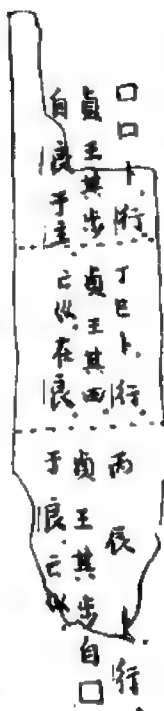 □□卜,行
貞王其步
自良于主
丁巳卜,行
貞王其田
亡 在良
丙辰卜,行
貞王其步自□
于良亡